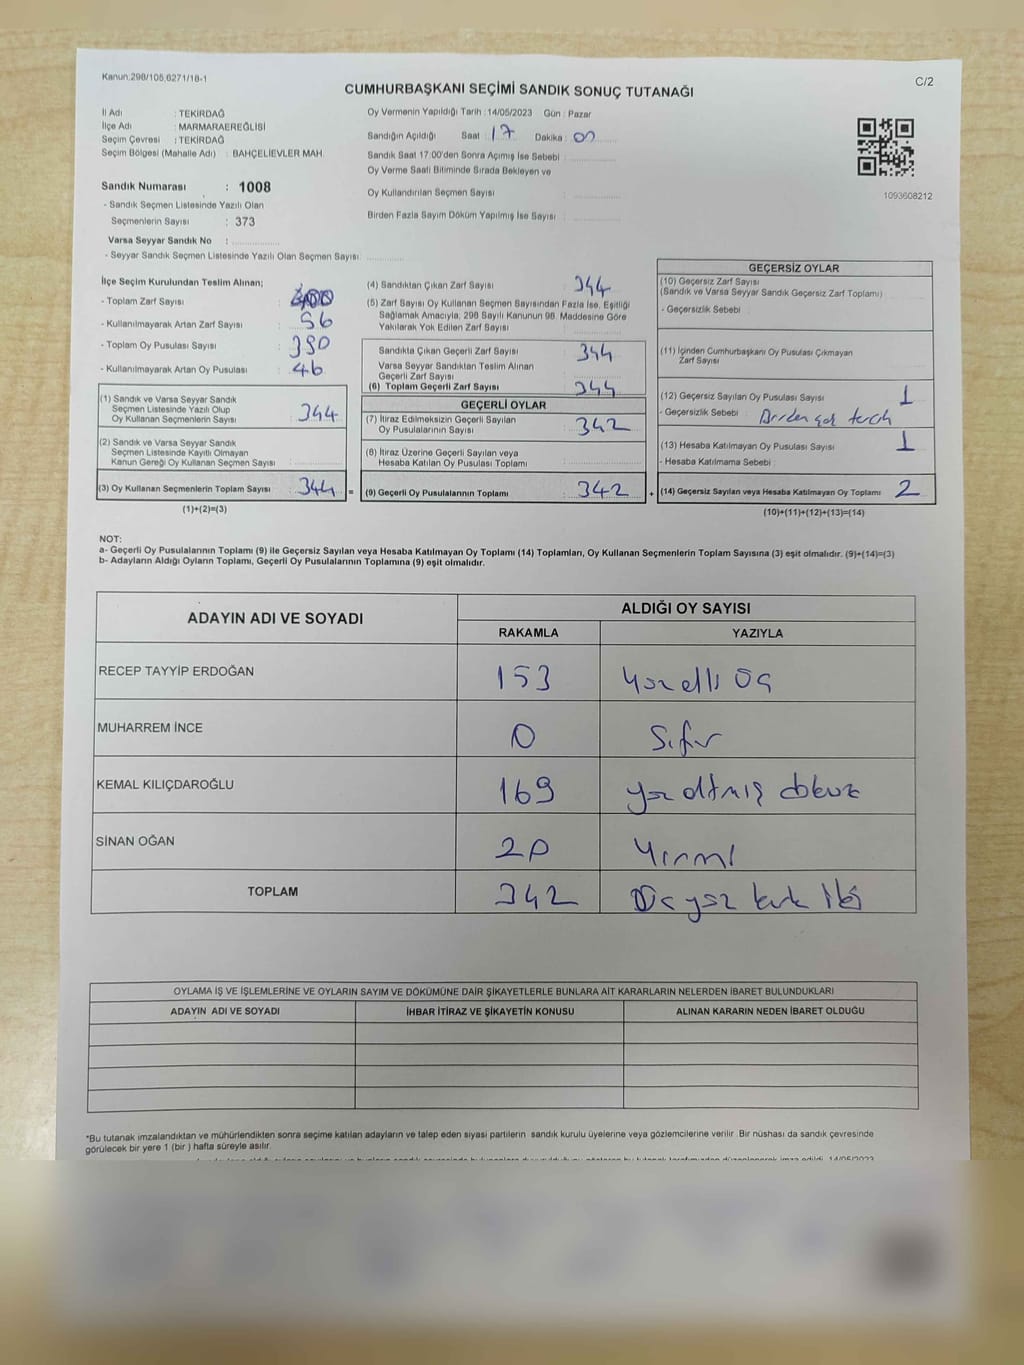 Kanun.298/105,6271/18-1
C/2
CUMHURBAŞKANI SEÇİMİ SANDIK SONUÇ TUTANAĞI
İl Adı : TEKİRDAĞ
İlçe Adı : MARMARAEREĞLİSİ
Seçim Çevresi : TEKİRDAĞ
Seçim Bölgesi (Mahalle Adı) : BAHÇELİEVLER MAH.
Oy Vermenin Yapıldığı Tarih : 14/05/2023 Gün : Pazar
Sandığın Açıldığı Saat : 17 Dakika : 00
Sandık Saat 17:00'den Sonra Açımış İse Sebebi :
Oy Verme Saati Bitiminde Sırada Bekleyen ve
Oy Kullandırılan Seçmen Sayısı :
Birden Fazla Sayım Döküm Yapılmış İse Sayısı :
1093608212
Sandık Numarası : 1008
- Sandık Seçmen Listesinde Yazılı Olan
Seçmenlerin Sayısı : 373
Varsa Seyyar Sandık No :
- Seyyar Sandık Seçmen Listesinde Yazılı Olan Seçmen Sayısı:
İlçe Seçim Kurulundan Teslim Alınan;
- Toplam Zarf Sayısı : 400
- Kullanılmayarak Artan Zarf Sayısı : 56
- Toplam Oy Pusulası Sayısı : 390
- Kullanılmayarak Artan Oy Pusulası : 46
(1) Sandık ve Varsa Seyyar Sandık
Seçmen Listesinde Yazılı Olup
Oy Kullanan Seçmenlerin Sayısı : 344
(2) Sandık ve Varsa Seyyar Sandık
Seçmen Listesinde Kayıtlı Olmayan
Kanun Gereği Oy Kullanan Seçmen Sayısı :
(3) Oy Kullanan Seçmenlerin Toplam Sayısı : 344 =
(1)+(2)=(3)
(4) Sandıktan Çıkan Zarf Sayısı : 344
(5) Zarf Sayısı Oy Kullanan Seçmen Sayısından Fazla İse, Eşitliği
Sağlamak Amacıyla, 298 Sayılı Kanunun 98. Maddesine Göre
Yakılarak Yok Edilen Zarf Sayısı :
Sandıkta Çıkan Geçerli Zarf Sayısı : 344
Varsa Seyyar Sandıktan Teslim Alınan
Geçerli Zarf Sayısı :
(6) Toplam Geçerli Zarf Sayısı : 344
GEÇERLİ OYLAR
(7) İtiraz Edilmeksizin Geçerli Sayılan
Oy Pusulalarının Sayısı : 342
(8) İtiraz Üzerine Geçerli Sayılan veya
Hesaba Katılan Oy Pusulası Toplamı :
(9) Geçerli Oy Pusulalarının Toplamı : 342 +
GEÇERSİZ OYLAR
(10) Geçersiz Zarf Sayısı
(Sandık ve Varsa Seyyar Sandık Geçersiz Zarf Toplamı) :
- Geçersizlik Sebebi :
(11) İçinden Cumhurbaşkanı Oy Pusulası Çıkmayan
Zarf Sayısı :
(12) Geçersiz Sayılan Oy Pusulası Sayısı : 1
- Geçersizlik Sebebi : Birden çok tercih
(13) Hesaba Katılmayan Oy Pusulası Sayısı : 1
- Hesaba Katılmama Sebebi :
(14) Geçersiz Sayılan veya Hesaba Katılmayan Oy Toplamı : 2
(10)+(11)+(12)+(13)=(14)
NOT:
a- Geçerli Oy Pusulalarının Toplamı (9) ile Geçersiz Sayılan veya Hesaba Katılmayan Oy Toplamı (14) Toplamları, Oy Kullanan Seçmenlerin Toplam Sayısına (3) eşit olmalıdır. (9)+(14)=(3)
b- Adayların Aldığı Oyların Toplamı, Geçerli Oy Pusulalarının Toplamına (9) eşit olmalıdır.
ADAYIN ADI VE SOYADI ALDIĞI OY SAYISI
RAKAMLA YAZIYLA
RECEP TAYYİP ERDOĞAN 153 Yüz elli üç
MUHARREM İNCE 0 Sıfır
KEMAL KILIÇDAROĞLU 169 yüz altmış dokuz
SİNAN OĞAN 20 Yirmi
TOPLAM 342 Üç yüz kırk iki
OYLAMA İŞ VE İŞLEMLERİNE VE OYLARIN SAYIM VE DÖKÜMÜNE DAİR ŞİKAYETLERLE BUNLARA AİT KARARLARIN NELERDEN İBARET BULUNDUKLARI
ADAYIN ADI VE SOYADI İHBAR İTİRAZ VE ŞİKAYETİN KONUSU ALINAN KARARIN NEDEN İBARET OLDUĞU
*Bu tutanak imzalandıktan ve mühürlendikten sonra seçime katılan adayların ve talep eden siyasi partilerin sandık kurulu üyelerine veya gözlemcilerine verilir. Bir nüshası da sandık çevresinde
görülecek bir yere 1 (bir ) hafta süreyle asılır.